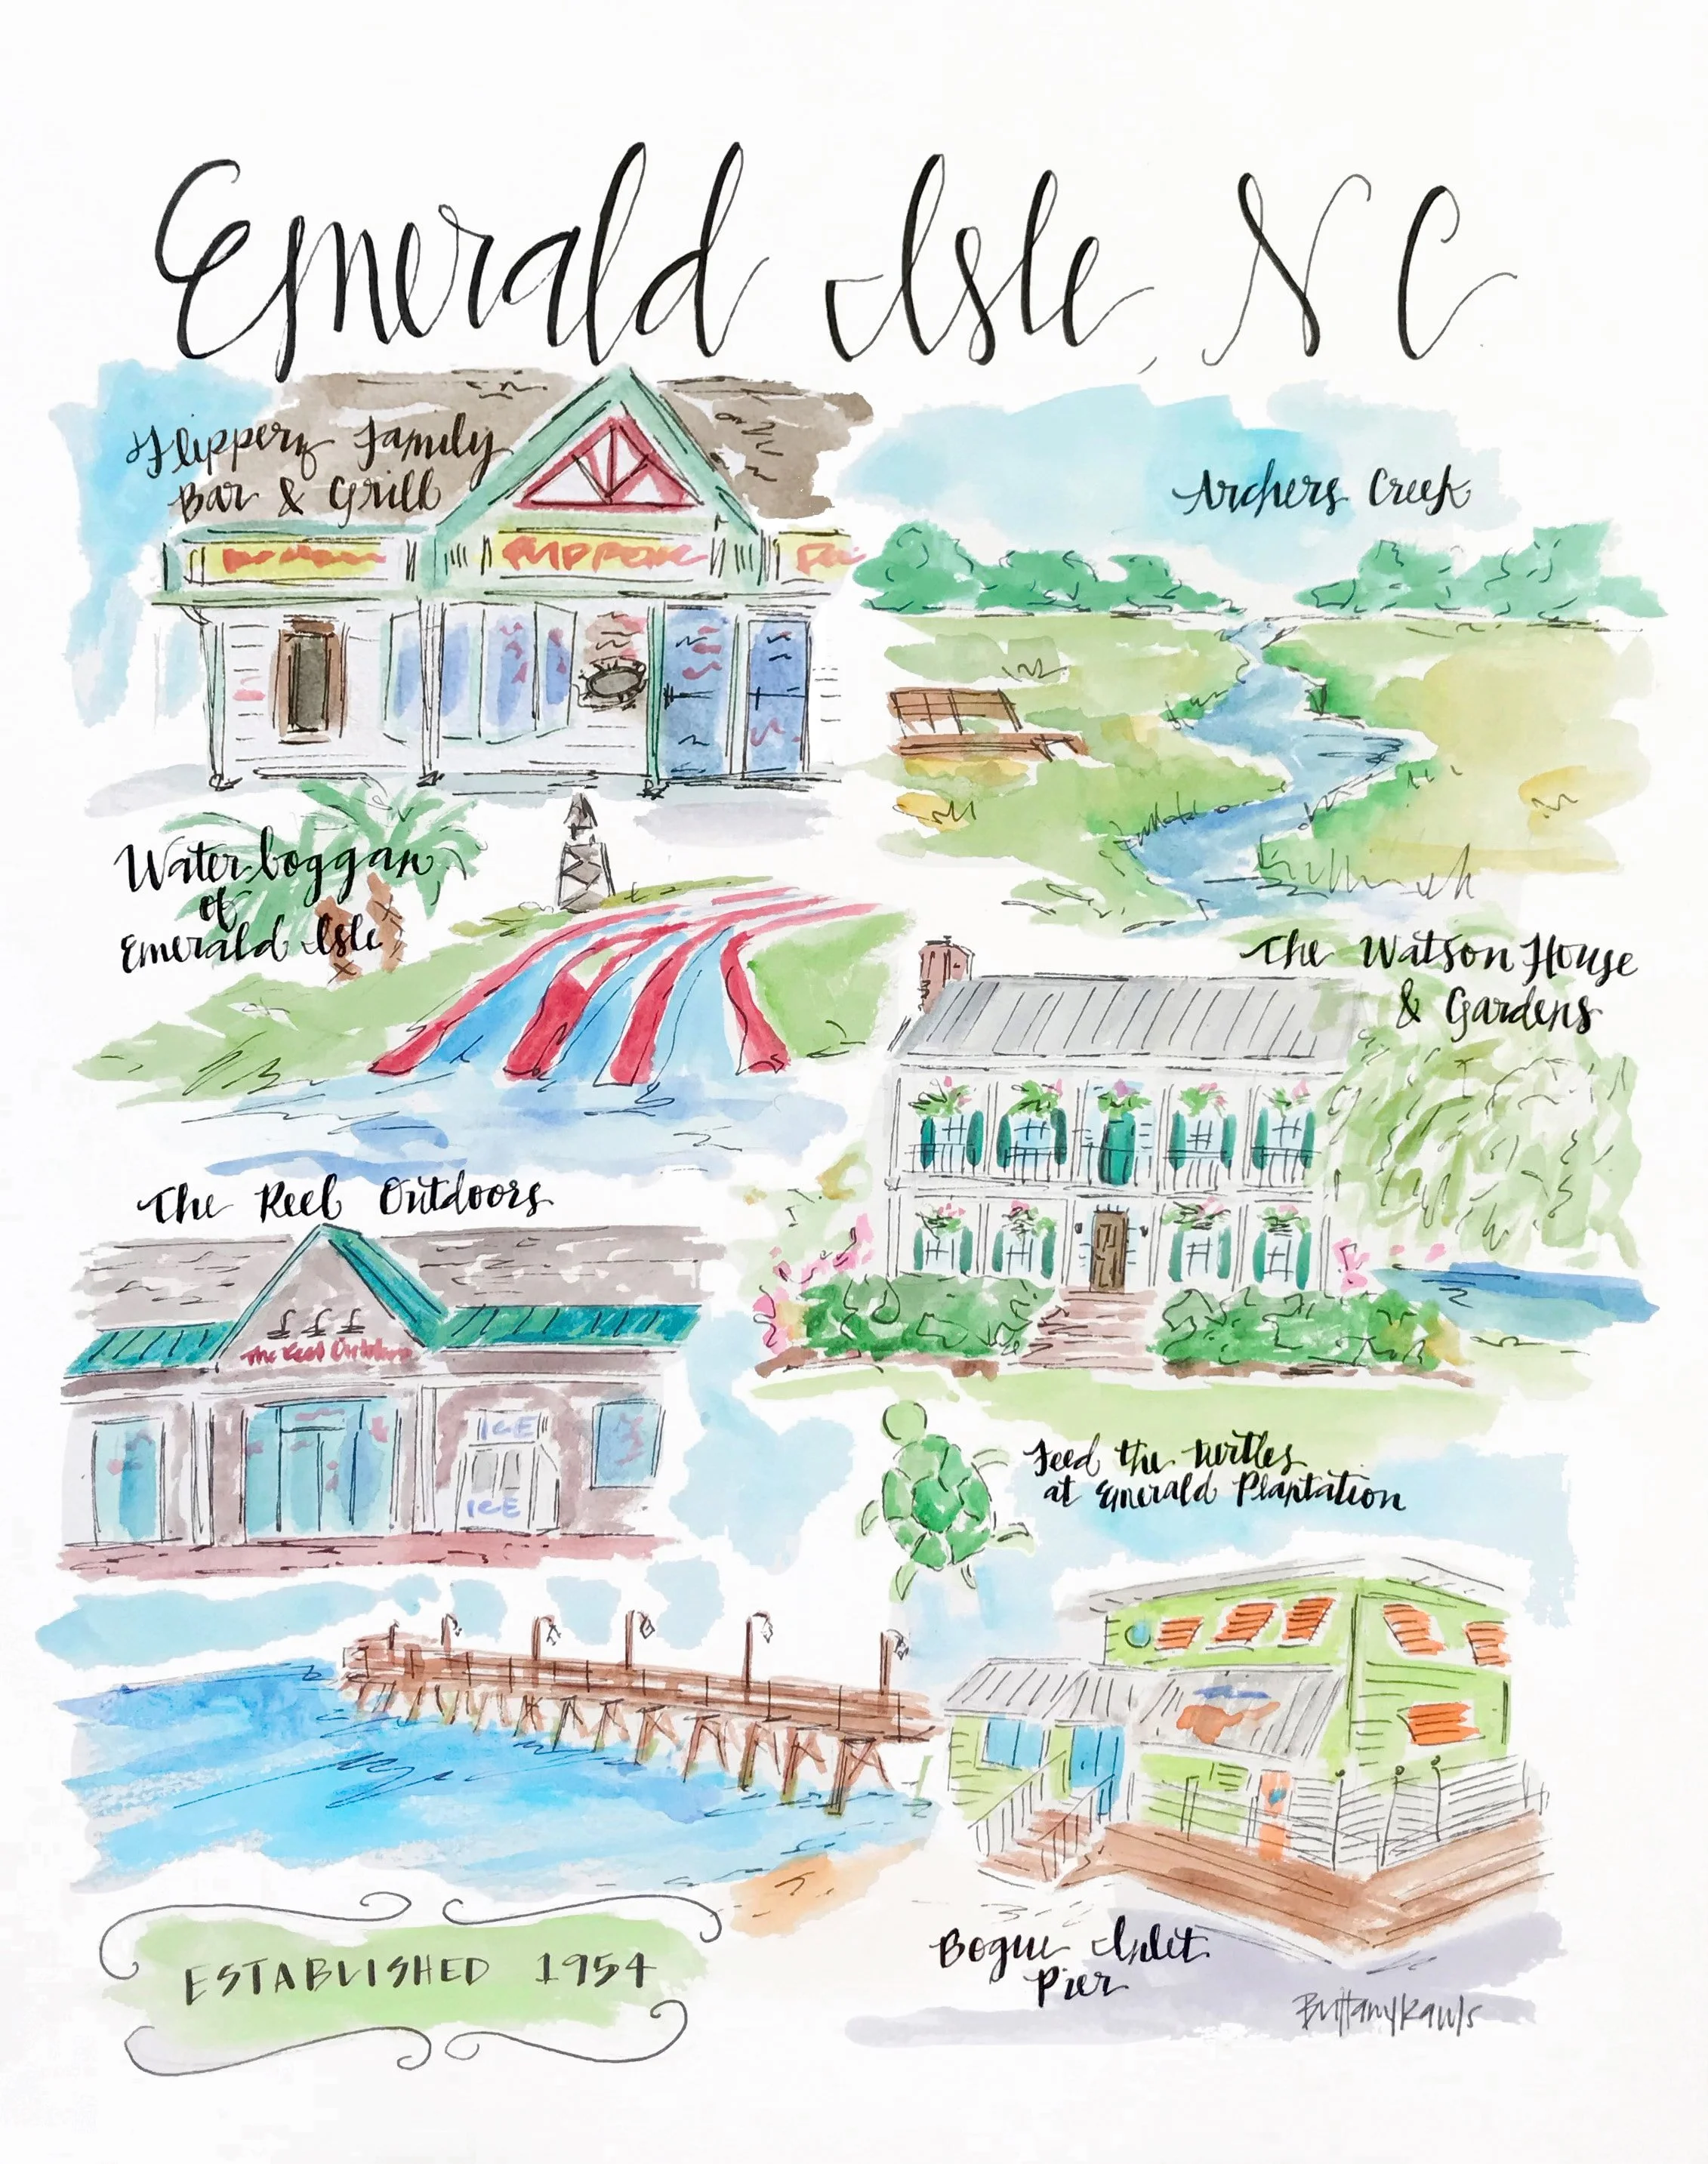 Emerald Isle, NC
Flipperz Family
Bar & Grill
FLIPPERZ
Archers Creek
Waterboggan
of
Emerald Isle
The Watson House
& Gardens
The Reel Outdoors
The Reel Outdoors
ICE
ICE
Feed the turtles
at Emerald Plantation
Bogue Inlet
Pier
ESTABLISHED 1954
Brittany Rawls